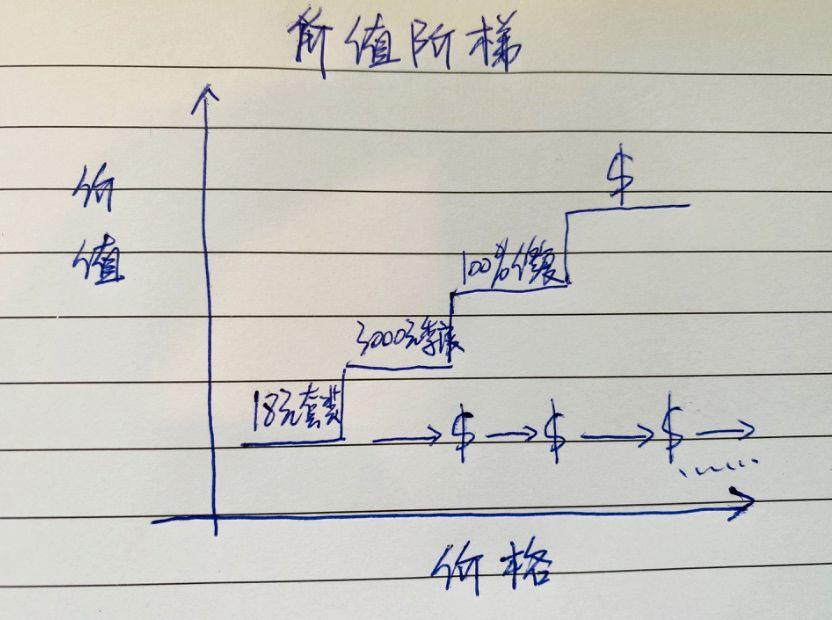 价值阶梯
价
值
$
100%修复
3000元季度
18元套装
$ $ $
价格